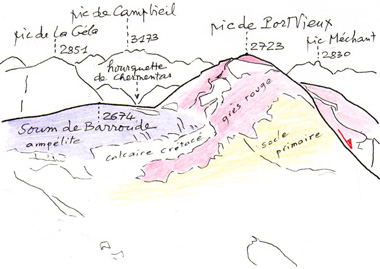 pic de Campbieil
3173
pic de La Géla
2851
pic de Port Vieux
2723
pic Méchant
2830
hourquette
de Chermentas
2674
Soum de Barroude
ampélite
calcaire crétacé
grès rouge
socle
primaire